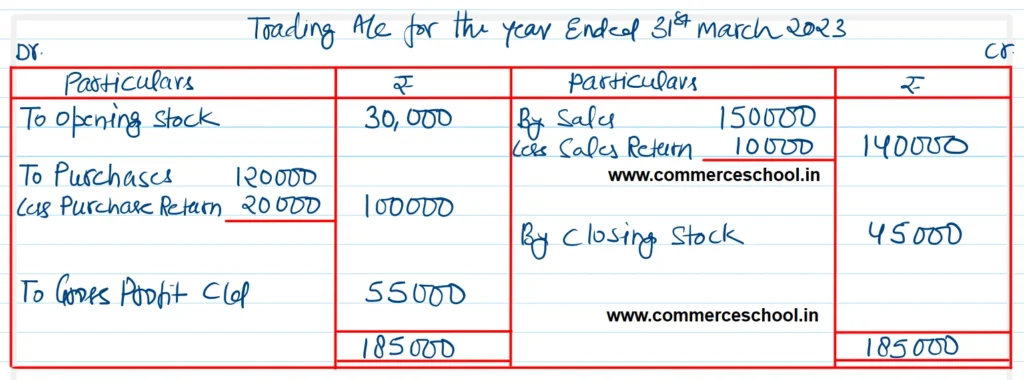 Trading A/c for the year Ended 31st march 2023
Dr. Cr.
Particulars ₹ Particulars ₹
To Opening Stock 30,000 By Sales 150000
Less Sales Return 10000 140000
To Purchases 120000 www.commerceschool.in
Less Purchase Return 20000 100000
By Closing Stock 45000
To Gross Profit C/d 55000
www.commerceschool.in
185000 185000